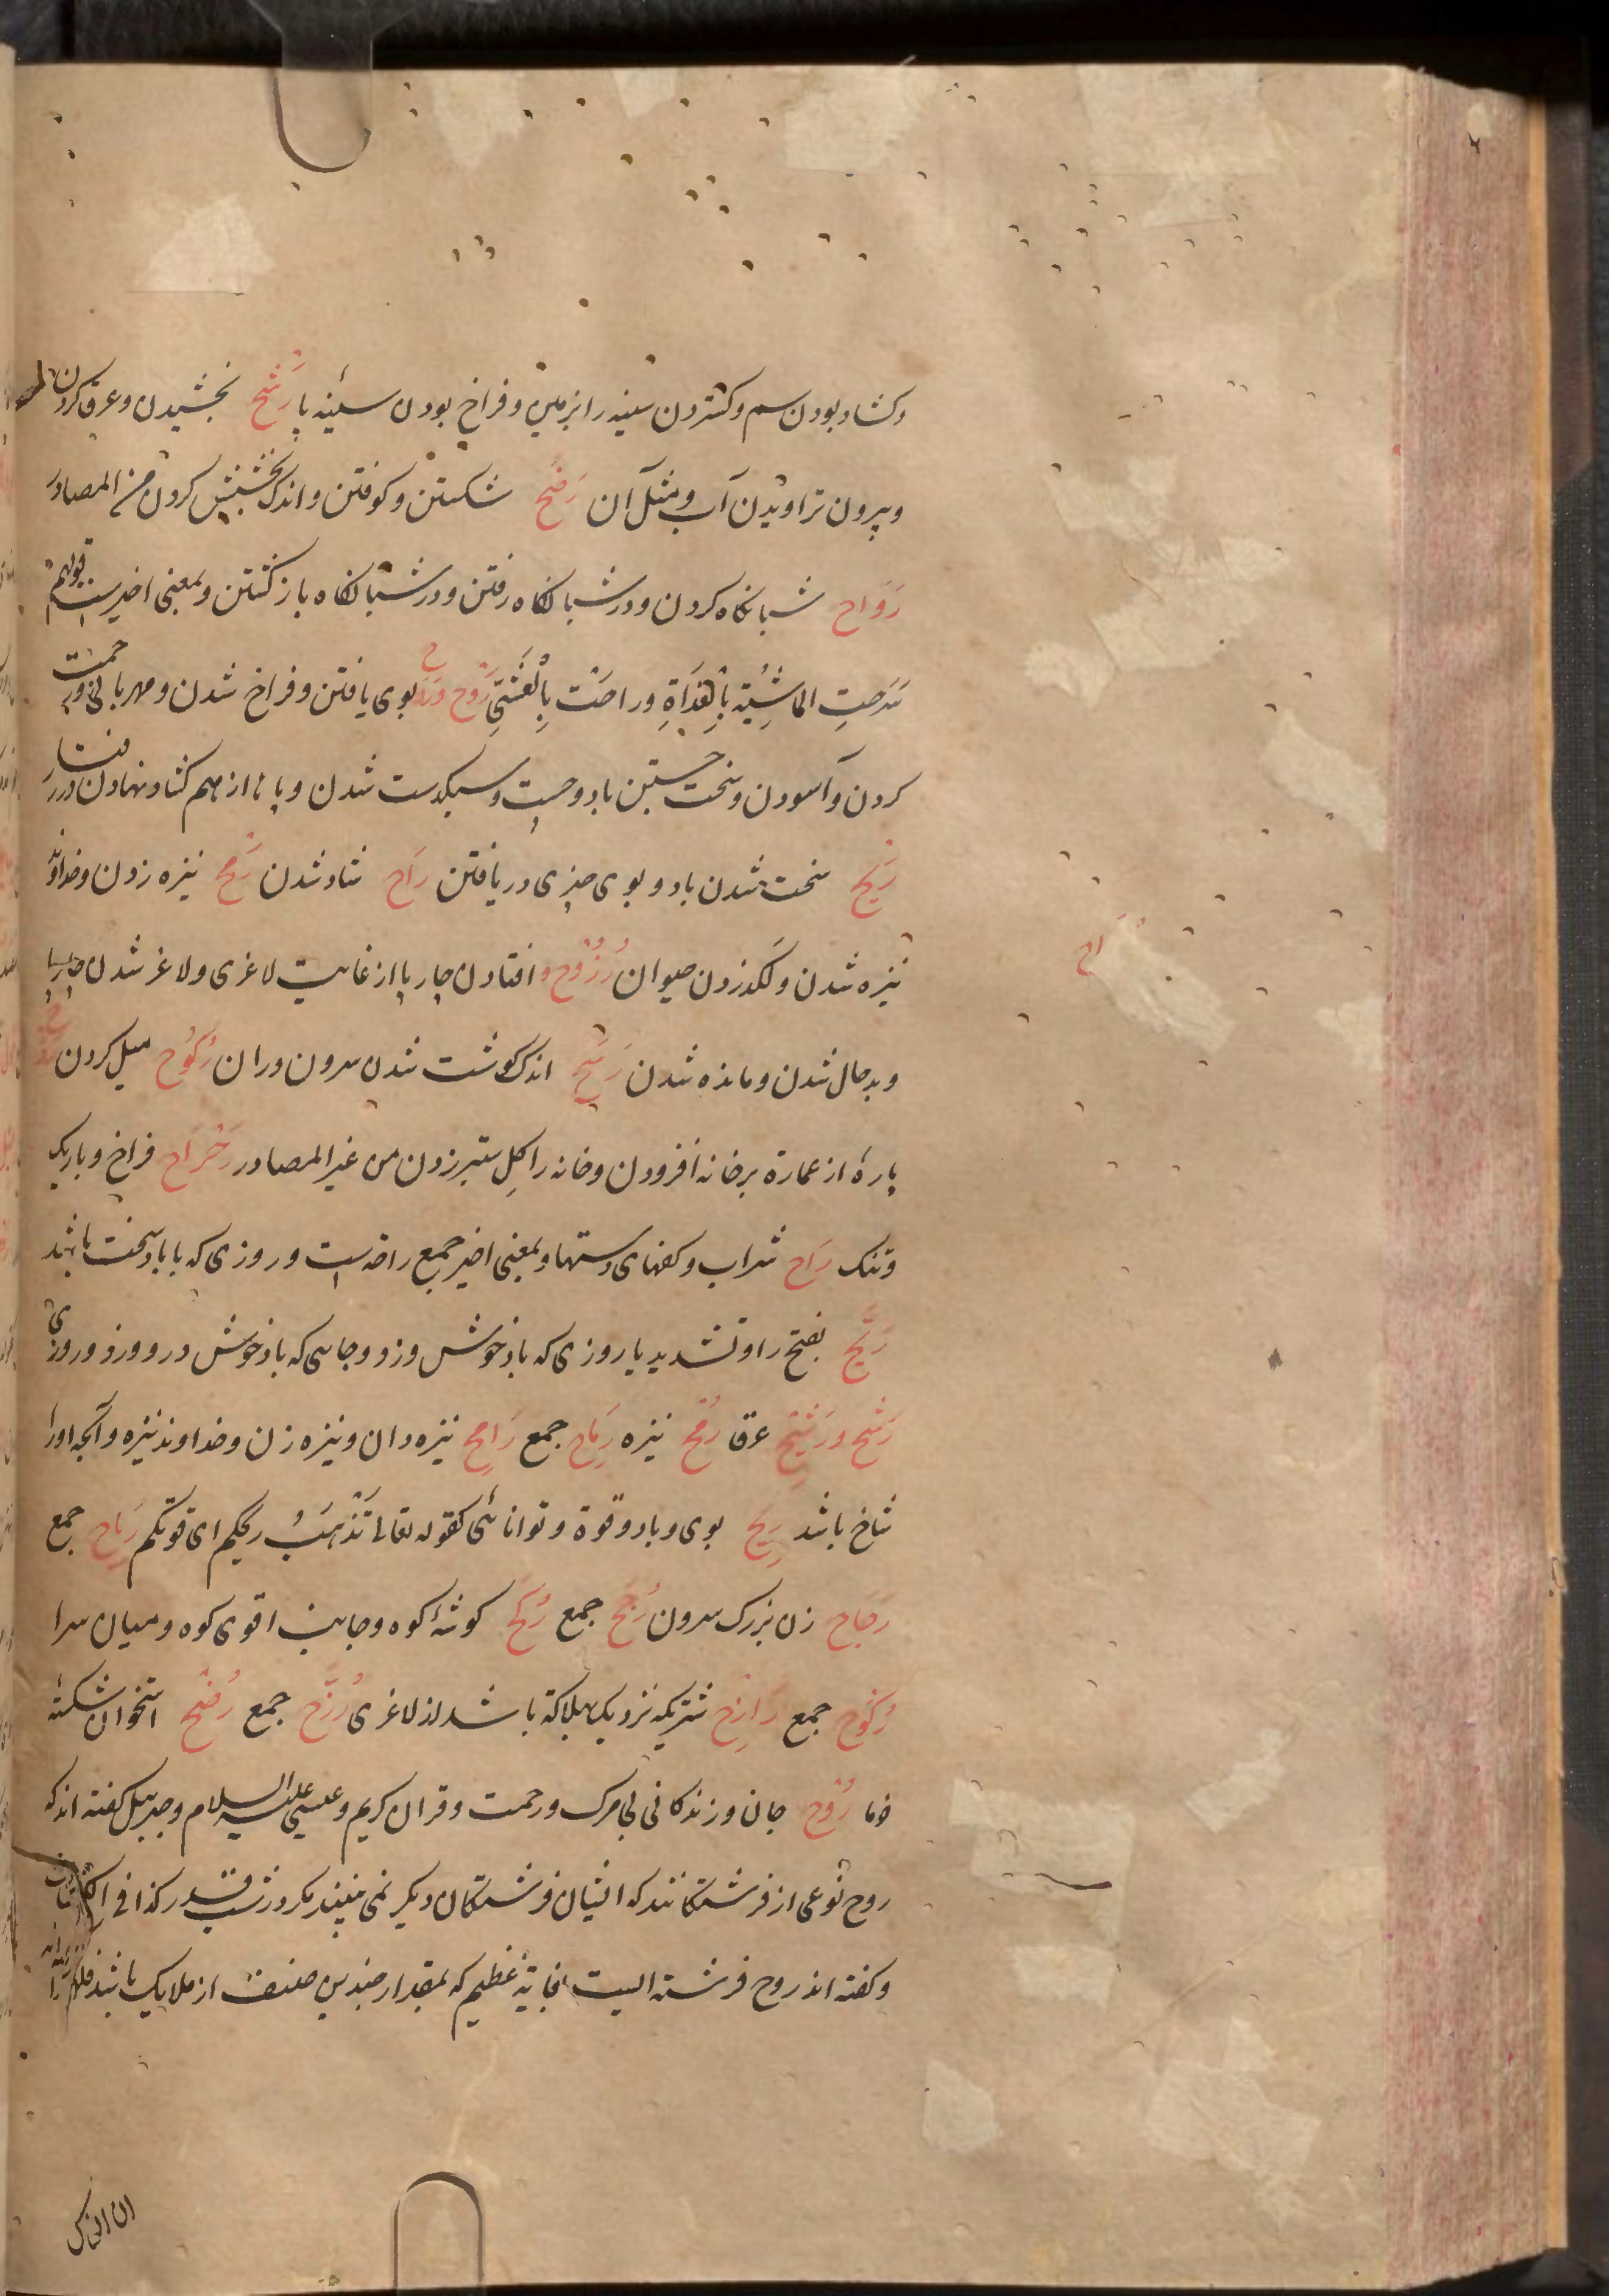 و کشاد بودن سم و کستردن سینه را بزمین و فراخ بودن سینه پا رَشْح بخشیدن و عرق کردن
و بیرون تراویدن آب و مثل آن رَضْح شکستن و کوفتن و اندک بخشیش کردن من المصادر
رَوَاح شبانکاه کردن و در شبانکاه رفتن و در شبانکاه باز کشتن و بمعنی اخیرست قولهم
سَرَحتِ الماشِیَة بِالْغَدَاةِ و راحَتْ بِالْعَشِیّ رَوْح بوی یافتن و فراخ شدن و مهربانی و رحمت
کردن و آسودن و سخت جستن باد و چست و سبکدست شدن و پایها از هم کشاد نهادن در رفتار
رَیْح سخت شدن باد و بوی چیزی دریافتن رَاح شاد شدن رَمْح نیزه زدن و خداوند
نیزه شدن و لکد زدن حیوان رُزُوْح افتادن چارپا از غایت لاغری و لاغر شدن چارپا
و بدحال شدن و مانده شدن رَسَح اندک کوشت شدن سرون و ران رُکُوْح میل کردن
پارهٔ از عمارة بر خانه افزودن و خانه را کل ستبر زدن من غیر المصادر رَحْرَاح فراخ و باریک
و تنک رَاح شراب و کفهای دستها و بمعنی اخیر جمع راحه است و روزی که با باد سخت باشد
رَیّح بفتح را و تشدید یا روزی که باد خوش وزد و جایی که باد خوش درو وزد و روزی
رَشْح و رَشِیْح عرق رُمْح نیزه رِمَاح جمع رَامِح نیزه دان و نیزه زن و خداوند نیزه و آنچه او را
شاخ باشد رِیْح بوی و باد و قوة و توانائی کقوله تعالی تَذْهَبَ ریحکم ای قوتکم رِیَاح جمع
رَجَاح زن بزرک سرون رُجُح جمع رُکْح کوشهٔ کوه و جانب اقوی کوه و میان سرا
رُکُوْح جمع رَازِح شتریکه نزدیک بهلاکة باشد از لاغری رُزَّح جمع رُضْح استخوان شکستهٔ
خرما رُوْح جان و زندکانی بی مرک و رحمت و قرآن کریم و عیسی علیه السلام و جبریل کفته اند که
روح نوعی از فرشتکانند که ایشان فرشتکان دیکر نمی بینند مکر در شب قدر کذا فی الکشاف
و کفته اند روح فرشته ایست بغایة عظیم که بمقدار چندین صنف از ملایک باشد
راح